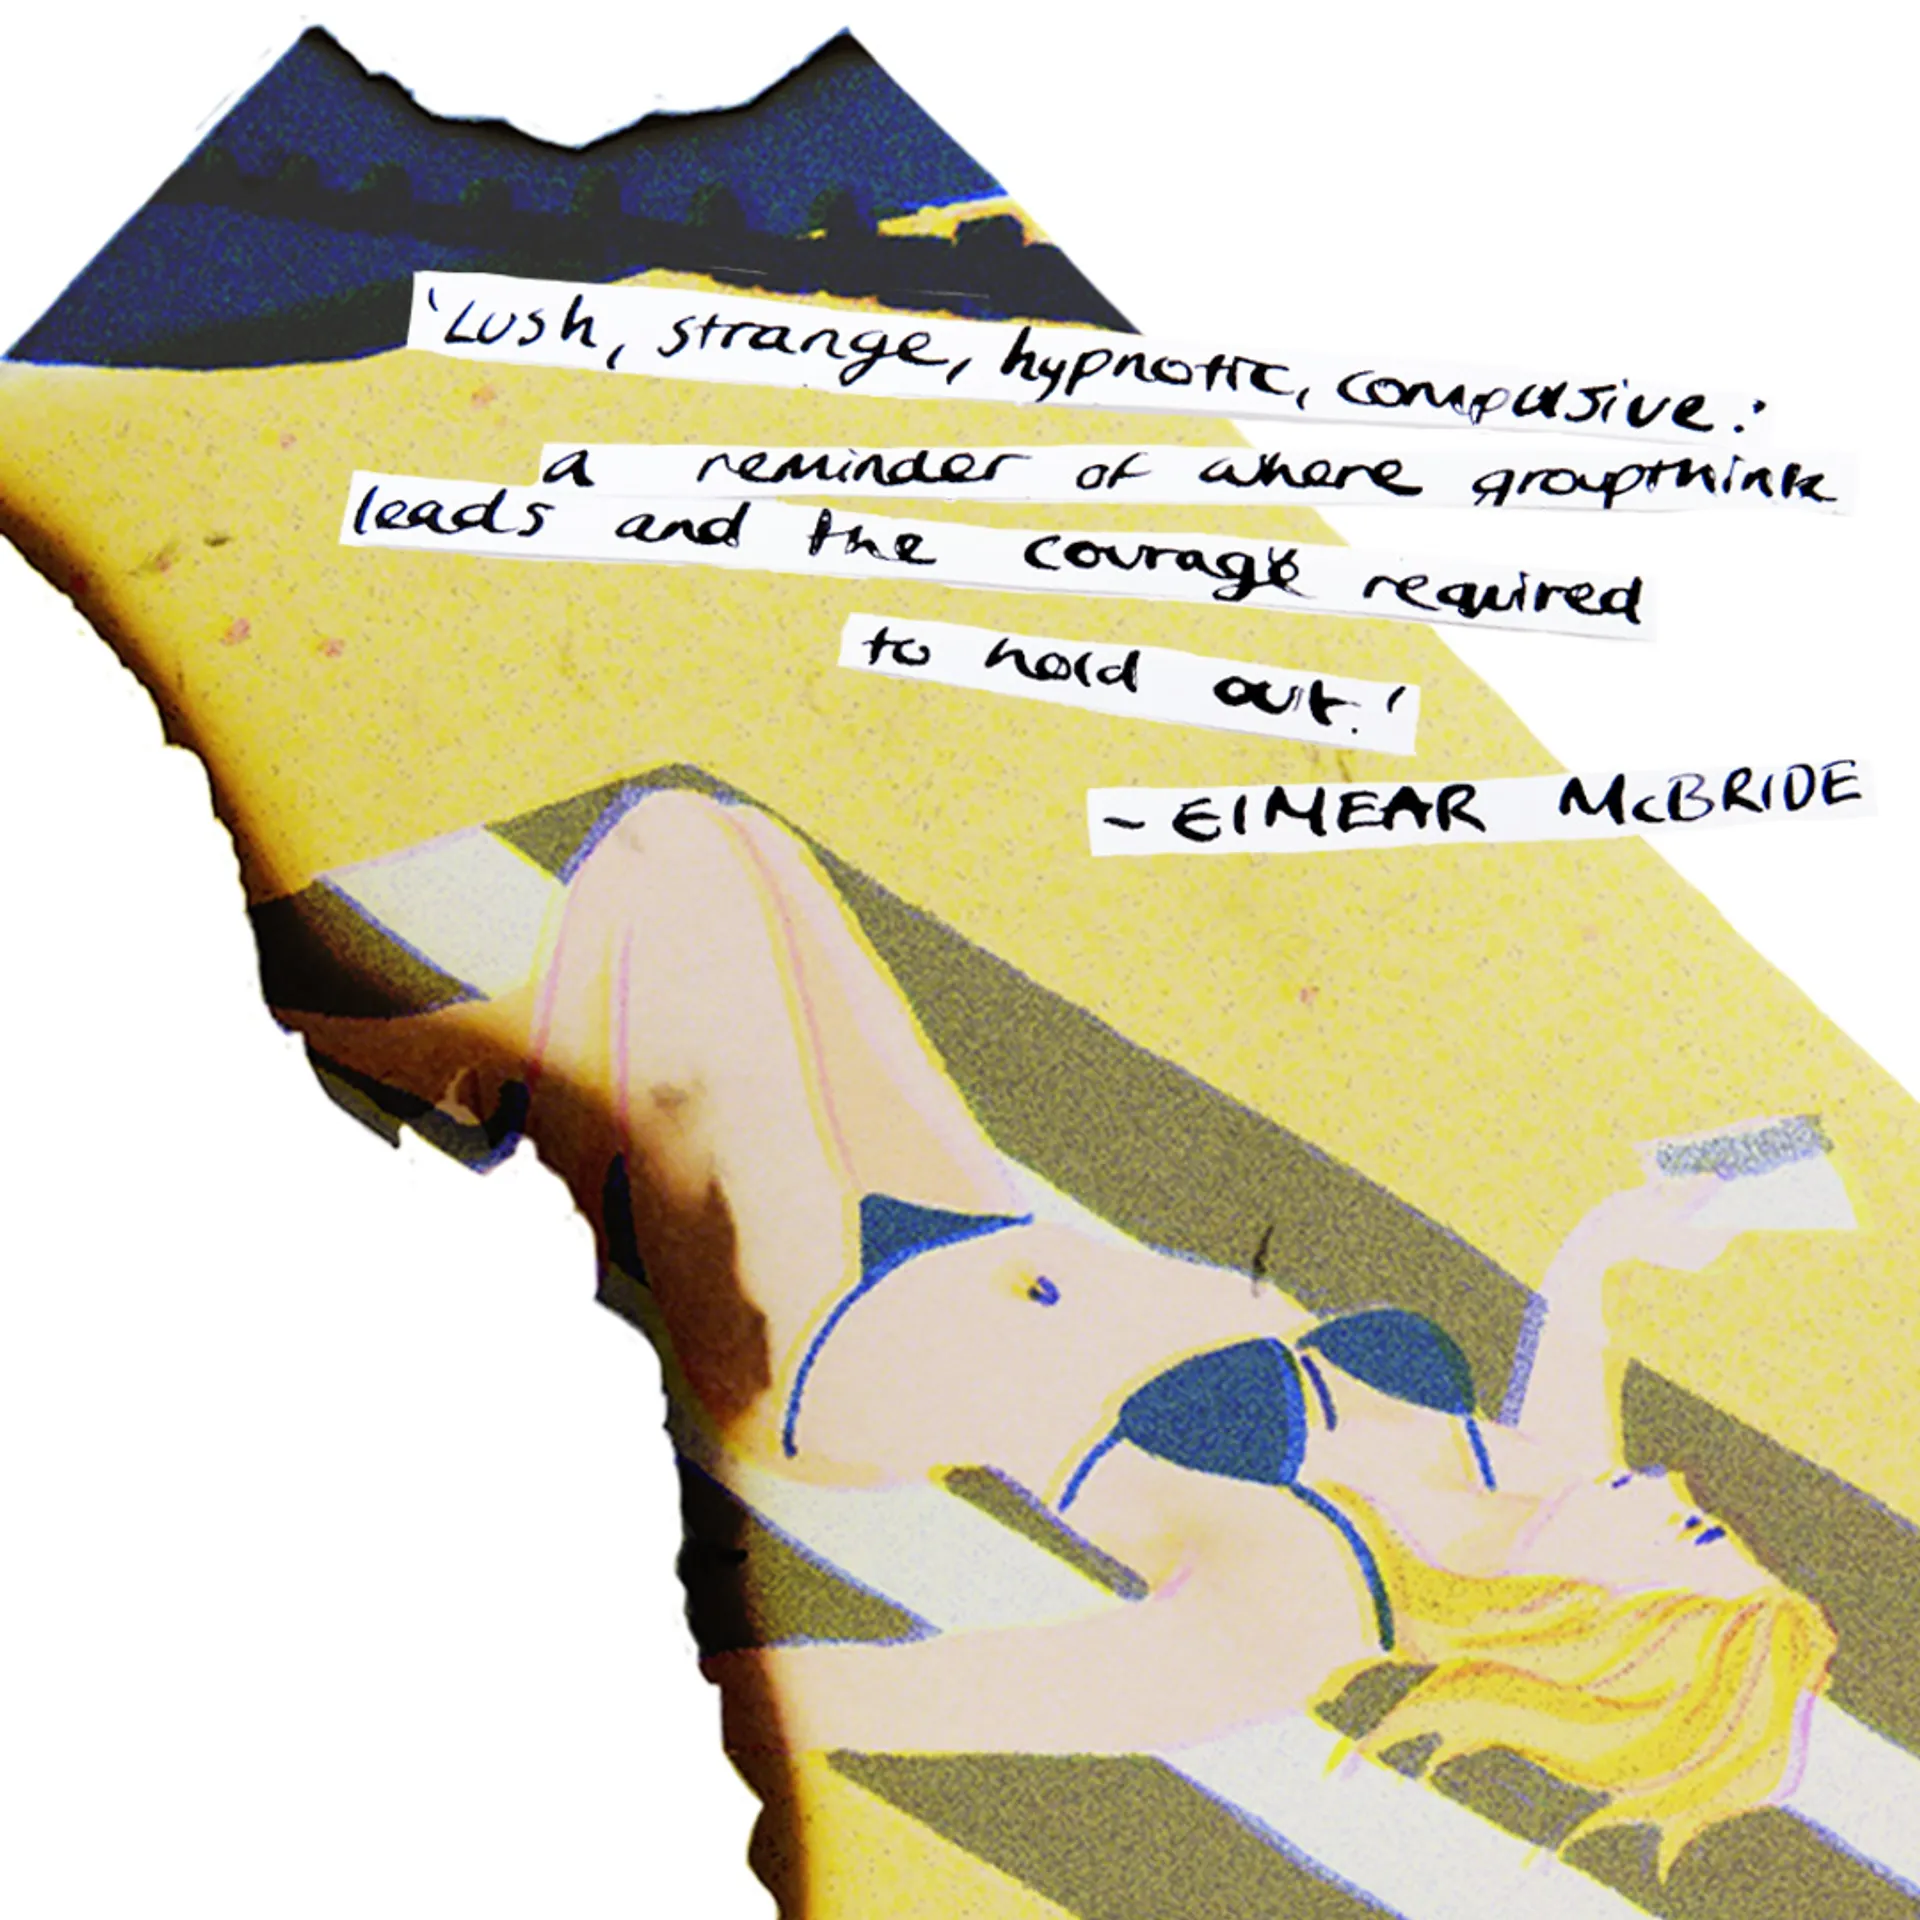 'Lush, strange, hypnotic, compulsive:
a reminder of where groupthink
leads and the courage required
to hold out.'
~ EIMEAR McBRIDE